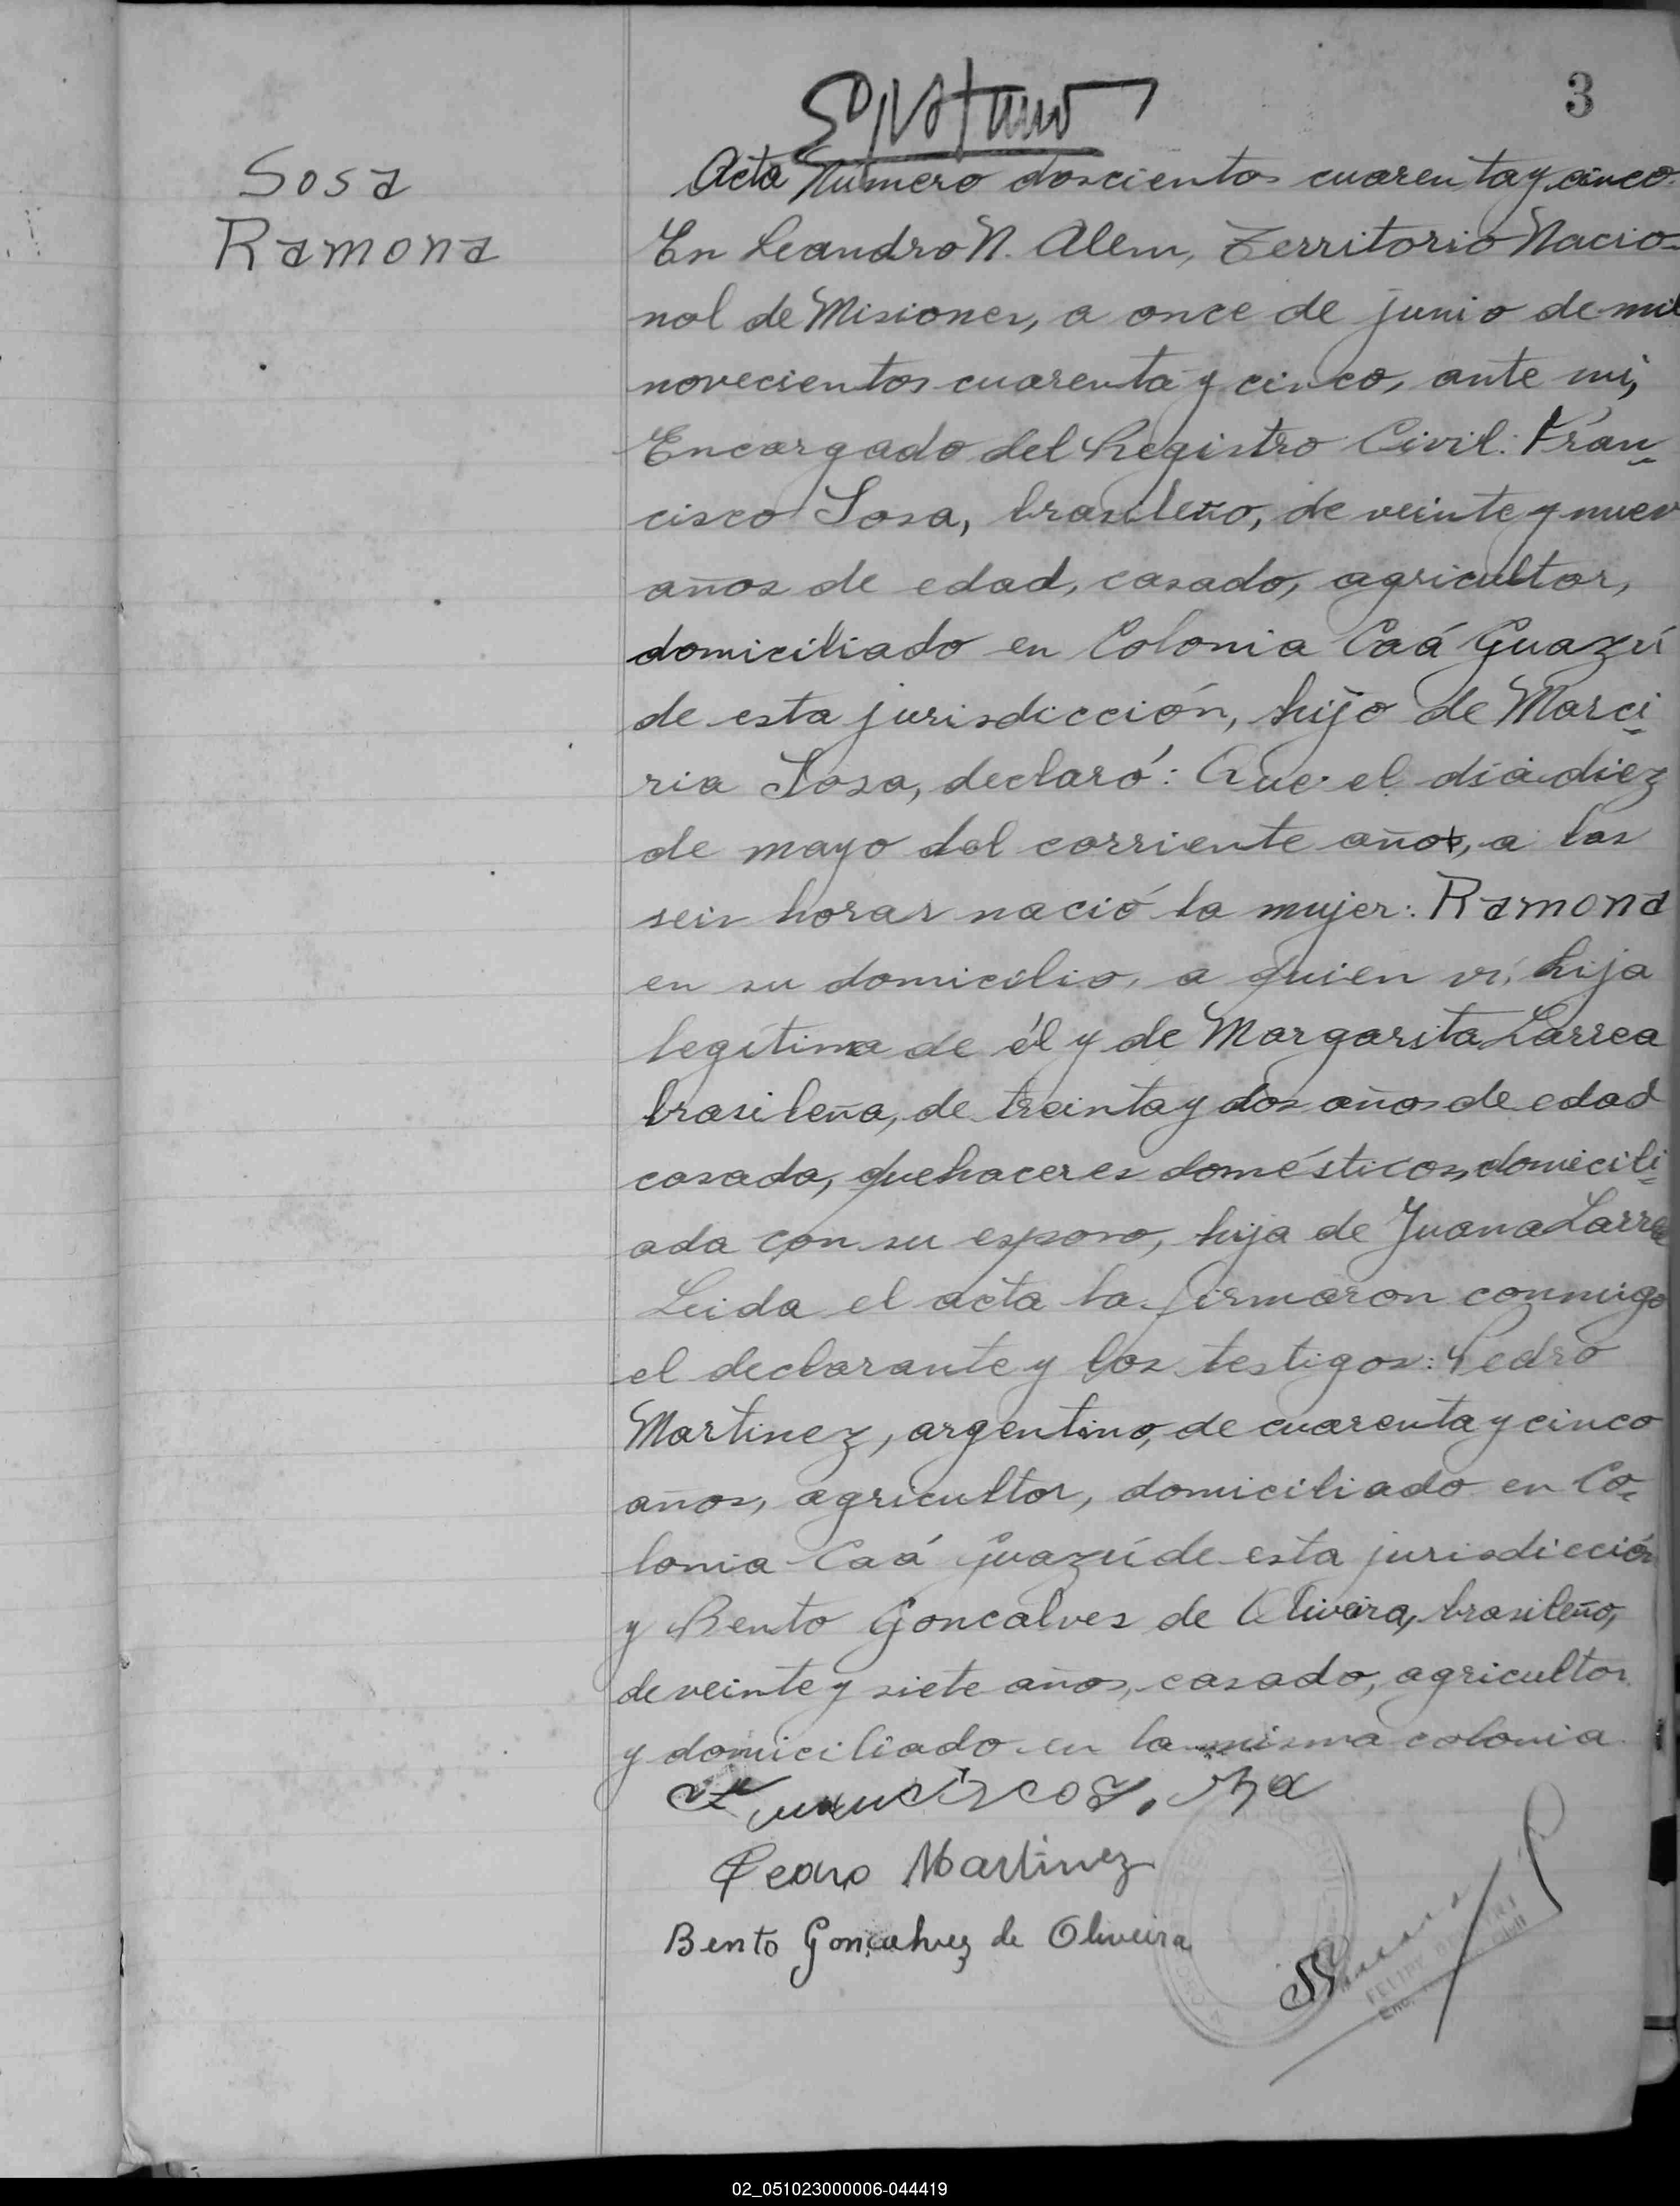 3
Sosa
Ramona
Acta Numero doscientos cuarenta y cinco.
En Leandro N. Alem, Territorio Nacio-
nal de Misiones, a once de junio de mil
novecientos cuarenta y cinco, ante mi,
Encargado del Registro Civil: Fran-
cisco Sosa, brasileño, de veinte y nuev
años de edad, casado, agricultor,
domiciliado en Colonia Caá Guazú
de esta jurisdicción, hijo de Marci-
ria Sosa, declaró: Que el día diez
de mayo del corriente año, a las
seis horas nació la mujer: Ramona
en su domicilio, a quien vi, hija
legítima de él y de Margarita Larrea
brasileña, de treinta y dos años de edad
casada, quehaceres domésticos, domicili-
ada con su esposo, hija de Juana Larrea
Leida el acta la firmaron conmigo
el declarante y los testigos: Pedro
Martinez, argentino, de cuarenta y cinco
años, agricultor, domiciliado en Co-
lonia Caá Guazú de esta jurisdicción
y Bento Goncalves de Oliveira, brasileño,
de veinte y siete años, casado, agricultor
y domiciliado en la misma colonia.
Pedro Martinez
Bento Goncalves de Oliveira
02_051023000006-044419